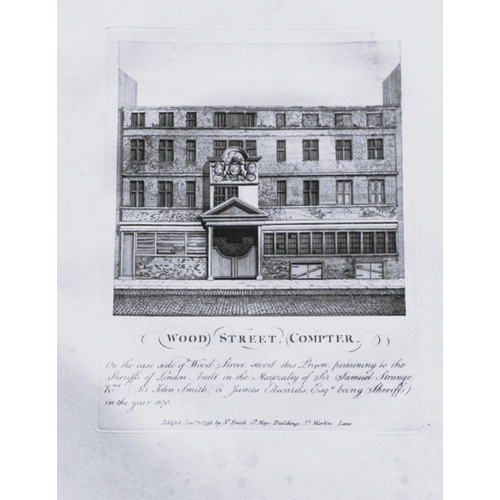 WOOD STREET, COMPTER.
On the east side of Wood Street stood this Prison pertaining to the
Sheriffs of London, built in the Mayoralty of Sir Samuel Strange
Kt. Sir John Smith, & James Edwards, Esqr. being Sheriffs,
in the year 1670.
Publish'd Jany. 1 1793 by N. Smith Gt. Mays Buildings, St. Martins Lane